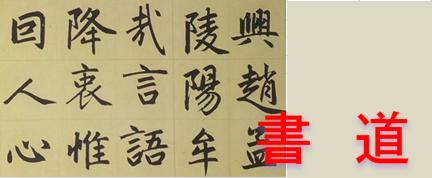 興趙孟
陵陽牟
哉言語
降衷惟
回人心
書道